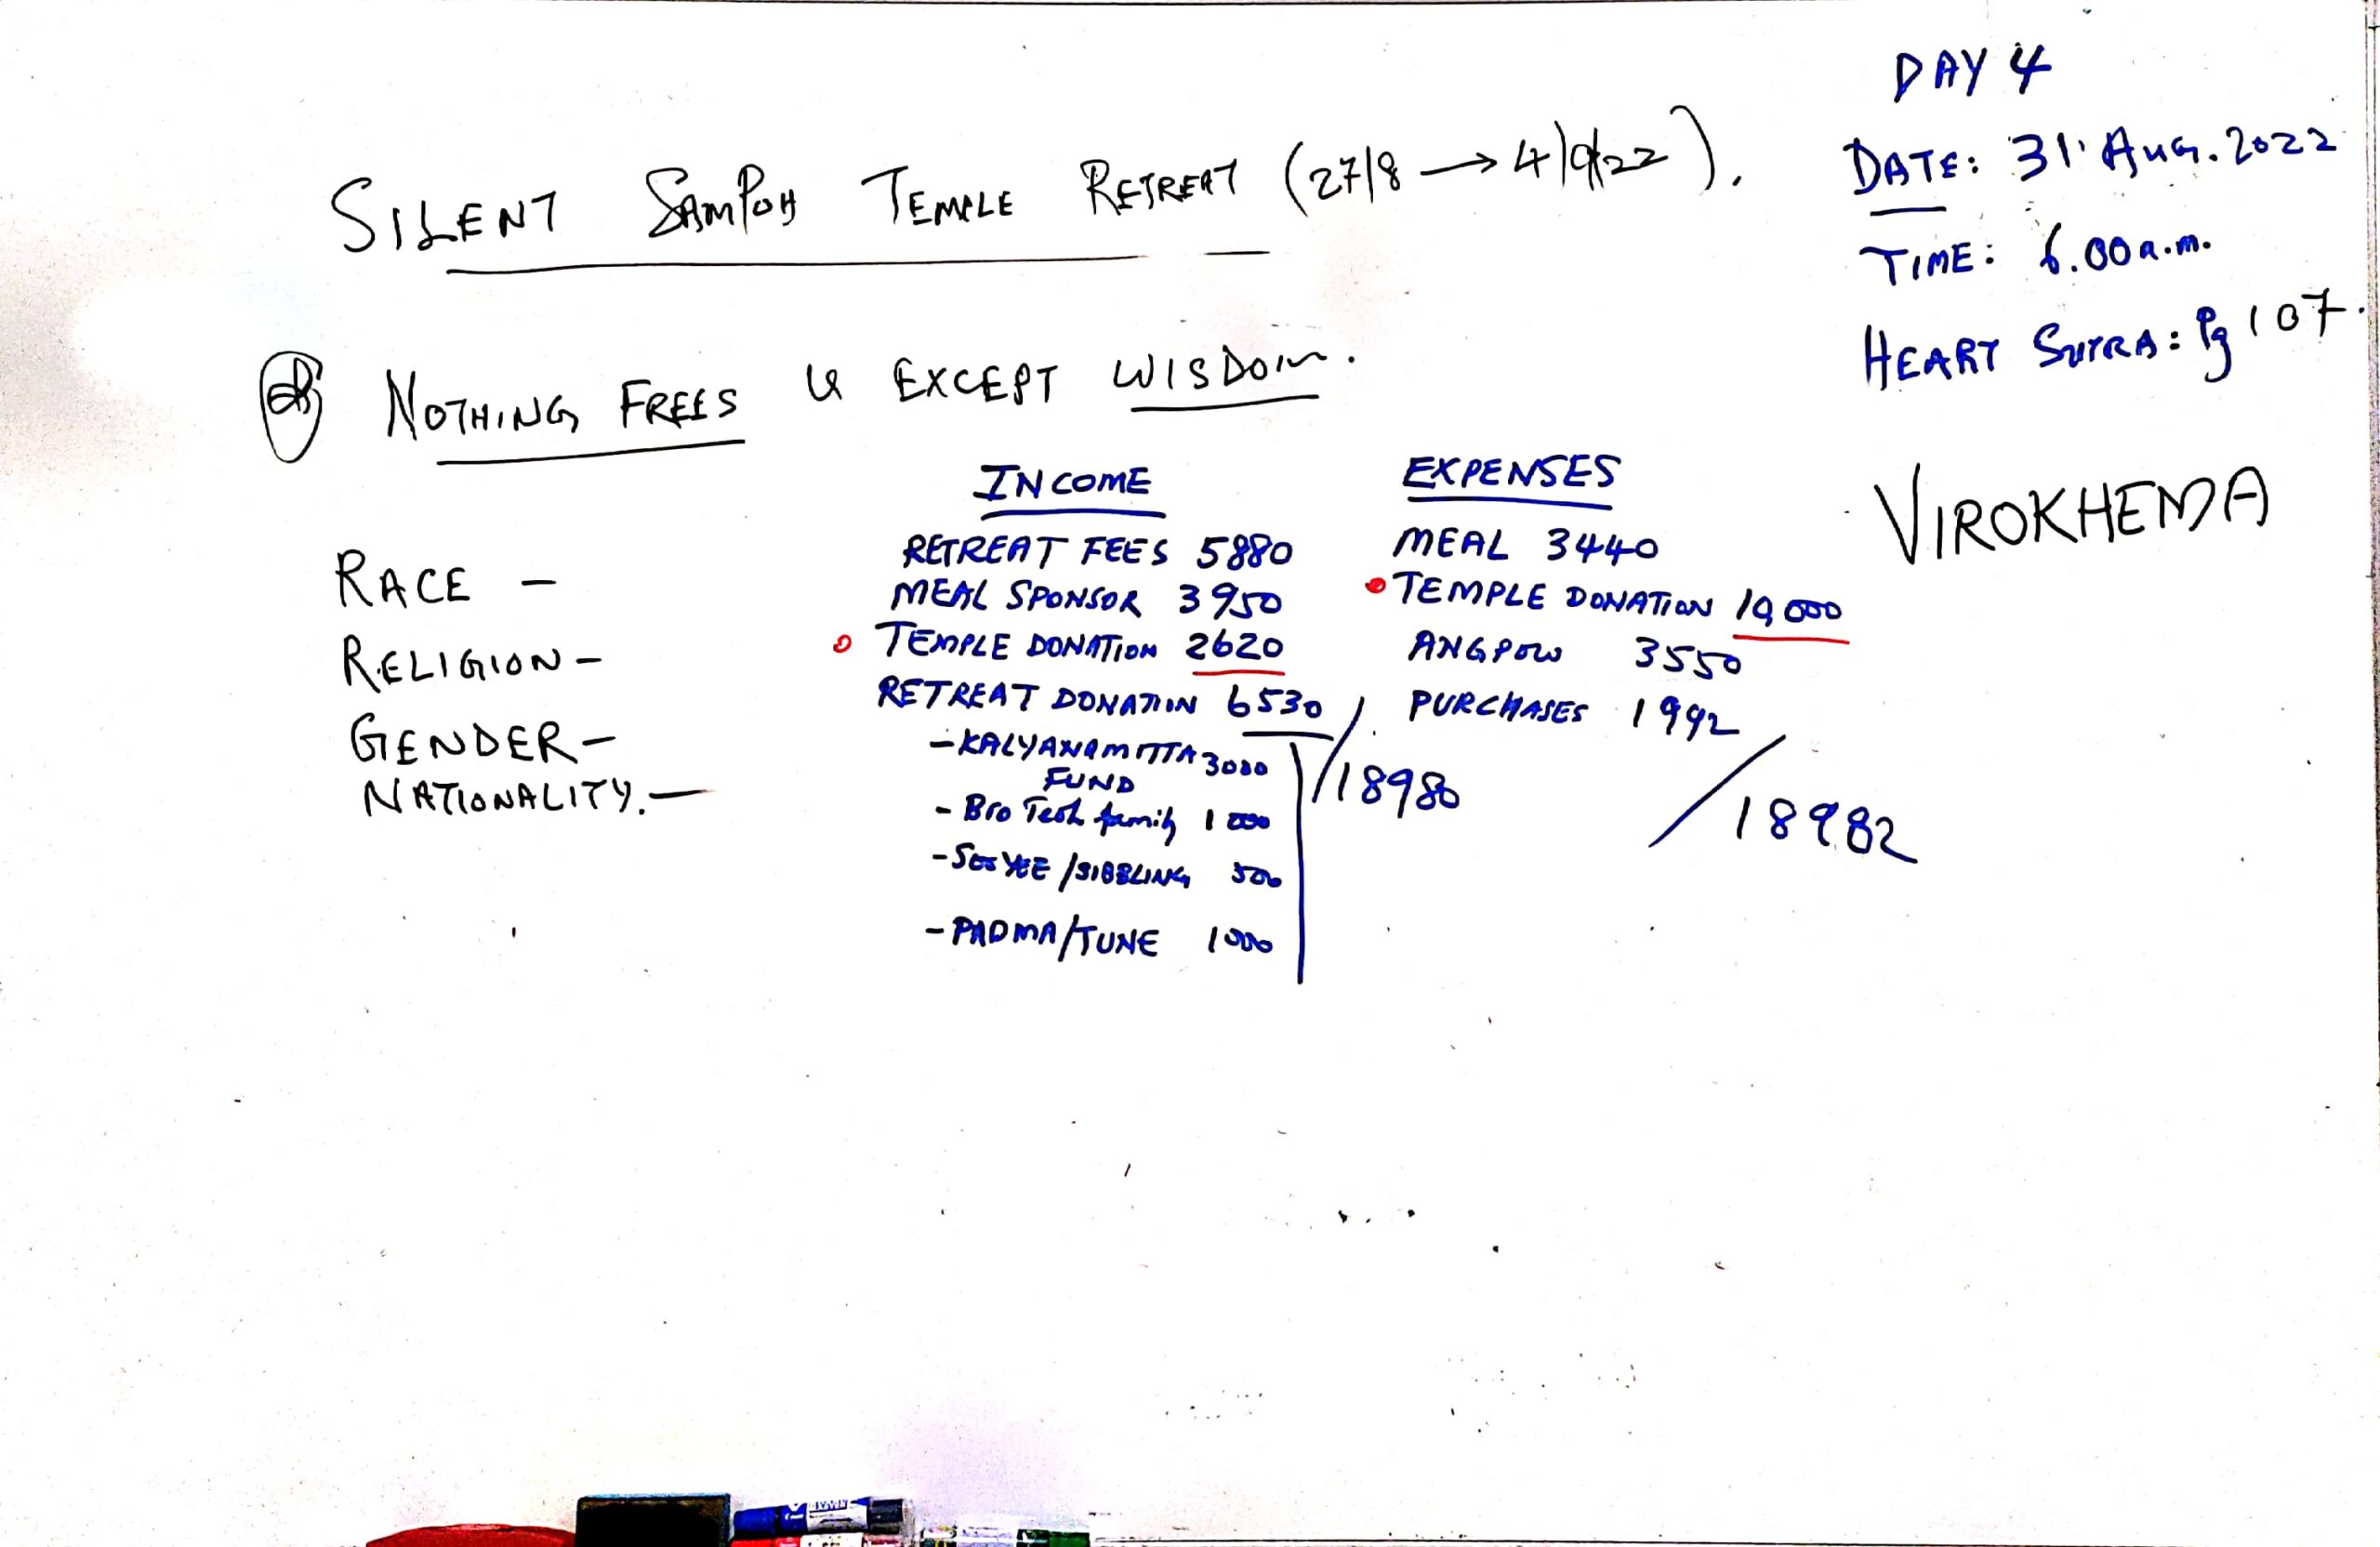 DAY 4
SILENT SAMPOH TEMPLE RETREAT (27/8 → 4/9/22).
DATE: 31 Aug. 2022
TIME: 6.00 a.m.
HEART SUTRA: Pg 107.
NOTHING FREES U EXCEPT WISDOM.
VIROKHEMA
RACE -
RELIGION -
GENDER -
NATIONALITY. -
INCOME
RETREAT FEES 5880
MEAL SPONSOR 3950
TEMPLE DONATION 2620
RETREAT DONATION 6530
- KALYANAMITTA 3000
FUND
- Bro Teoh family 1000
- YEE /SIBBLING 500
- PADMA/TUNE 1000
18980
EXPENSES
MEAL 3440
TEMPLE DONATION 10,000
ANGPOW 3550
PURCHASES 1992
18982